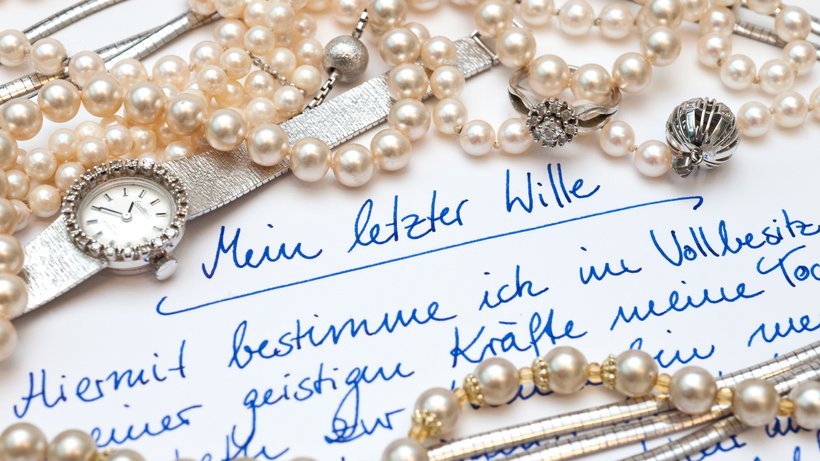 Mein letzter Wille
Hiermit bestimme ich im Vollbesitz
meiner geistigen Kräfte meine Toc
zur